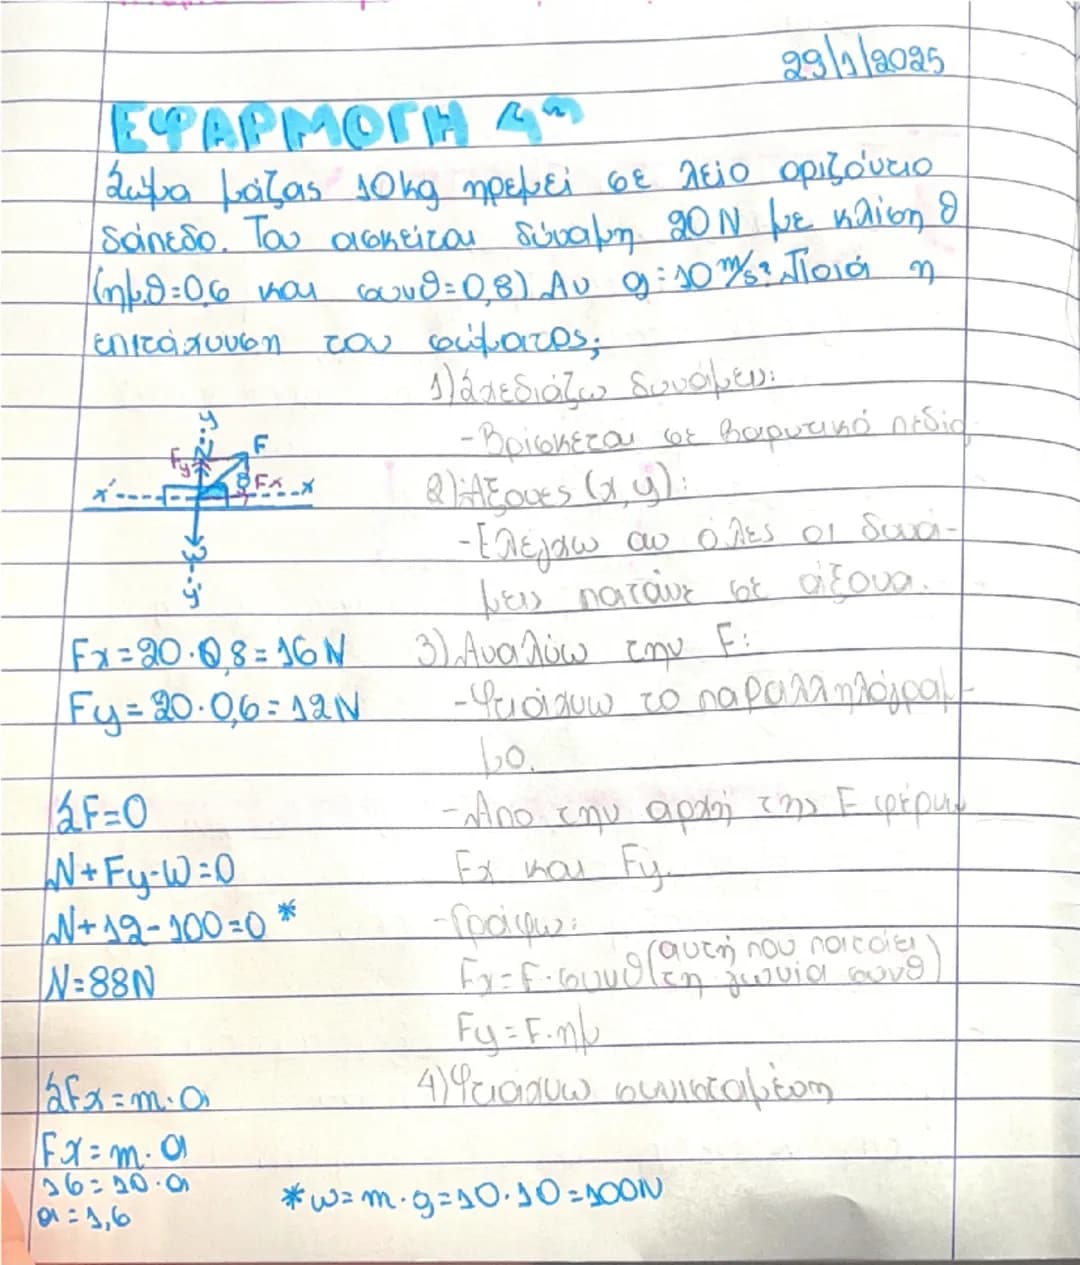 29/1/2025
ΕΦΑΡΜΟΓΗ 4η
Σώμα μάζας 10kg ηρεμεί σε λείο οριζόντιο
δάπεδο. Του ασκείται δύναμη 20N με κλίση θ
(ημθ=0,6 και συνθ=0,8) Αν g=10 m/s² Ποιά η
επιτάχυνση του σώματος;
1) Σχεδιάζω δυνάμεις:
-Βρίσκεται σε βαρυτικό πεδίο
2) Άξονες (x,y):
-Ελέγχω αν όλες οι δυνά-
μεις πατάνε σε άξονα.
y
N
Fy
F
θ
Fx
x'
x
w
y'
Fx=20·0,8=16N
Fy=20·0,6=12N
3) Αναλύω την F:
-Φτιάχνω το παραλληλόγραμ-
μο.
-Απο την αρχή της F φέρνω
Fx και Fy.
-Γράφω:
Fx=F·συνθ (αυτή που πατάει
τη γωνία συνθ)
Fy=F·ημ
4) Φτιάχνω συνισταμένη
ΣF=0
N+Fy-W=0
N+12-100=0 *
N=88N
ΣFx=m·a
Fx=m·a
16=10·a
a=1,6
*w=m·g=10·10=100N